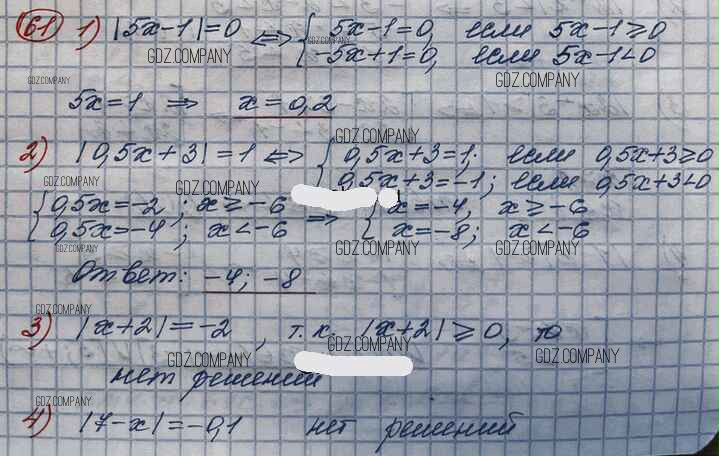 61 1) |5x-1|=0 ⟺ { 5x-1=0, если 5x-1≥0
GDZ.COMPANY GDZ.COMPANY
-5x+1=0, если 5x-1<0
GDZ.COMPANY GDZ.COMPANY
5x=1 ⇒ x=0,2
GDZ.COMPANY
2) |0,5x+3|=1 ⟺ { 0,5x+3=1; если 0,5x+3≥0
0,5x+3=-1; если 0,5x+3<0
GDZ.COMPANY GDZ.COMPANY
{ 0,5x=-2; x≥-6 ⇒ { x=-4, x≥-6
0,5x=-4; x<-6 x=-8; x<-6
GDZ.COMPANY GDZ.COMPANY GDZ.COMPANY
Ответ: -4; -8
GDZ.COMPANY
3) |x+2|=-2, т.к. |x+2|≥0, то
GDZ.COMPANY GDZ.COMPANY GDZ.COMPANY
нет решений
GDZ.COMPANY
4) |7-x|=-0,1 нет решений